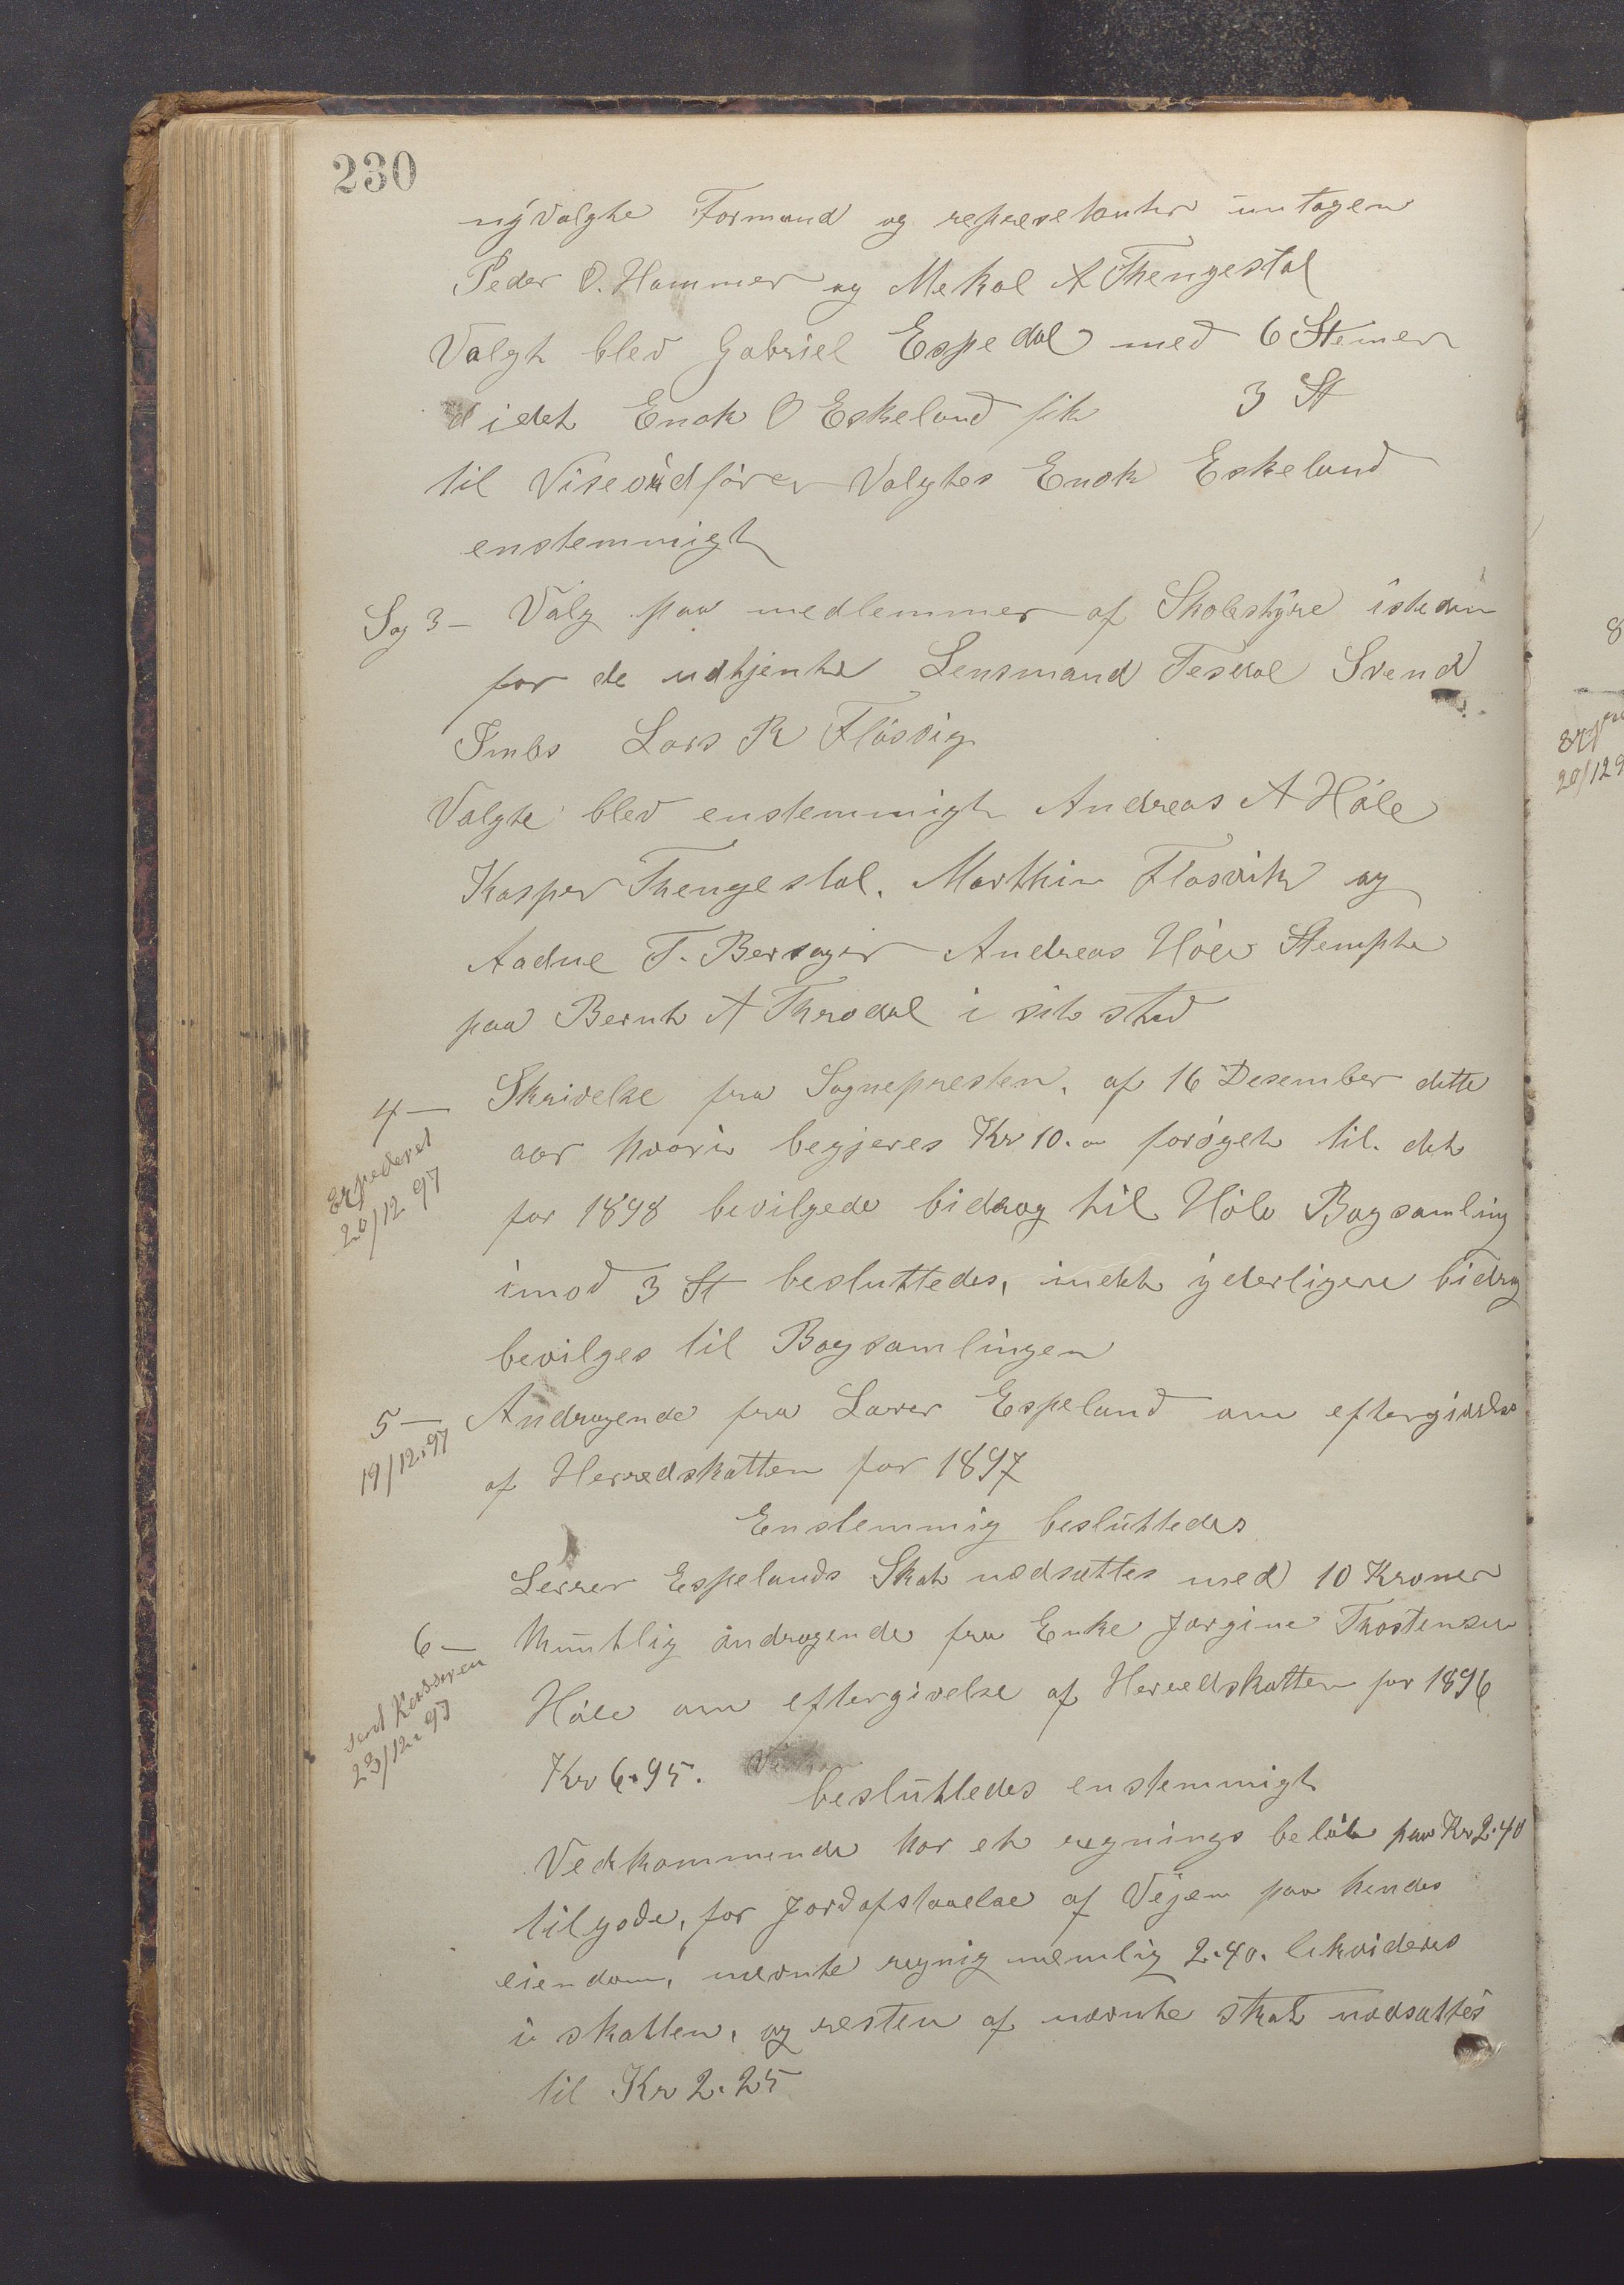 230
nÿvalgte Formand og represetanter untagen
Peder O. Hammer og Mekal A Thengestal
Valgt blev Gabriel Espedal med 6 Stemer
idet Enok O Eskeland fik 3 St
til Viseordförer Valgtes Enok Eskeland
enstemmigt
Sag 3- Valg paa medlemmer af Skolestÿre isteden
for de udtjente Lensmand Tesdal Svend
Imbs Lars R Flösvig
Valgte blev enstemmigt Andreas A Höle
Kasper Thengestal. Marthin Flosvik og
Aadne T. Bersagir Andreas Höle Stempte
paa Bernt A Throdal i sit sted
4- Skrivelse fra Sognepresten, af 16 Desember dette
Expederet
20/12 97
aar hvori begjeres Kr 10.00 forøget til. det
for 1898 bevilgede bidrag til Höle Bogsamling
imod 3 St besluttedes, intet ÿderligere bidrag
bevilges til Bogsamlingen
5- Andragende fra Lærer Espeland om eftergivelse
19/12.97
af Herredskatten for 1897
Enstemmig besluttedes
Lerrer Espelands Skat nedsættes med 10 Kroner
6- Muntlig andragende fra Enke Jorgine Thostensen
sent Kasseren
23/12.97
Höle om eftergivelse af Herredskatten for 1896
Kr 6.95.
besluttedes enstemmigt
Vedkommende har et regnings belöb paa Kr 2.40
tilgode, for Jordafstaaelse af Vejen paa hendes
eiendom, nævnte regnig nemlig 2.40. likvideres
i skatten, og resten af nævnte skat nædsættes
til Kr 2.25
8
20/12 9